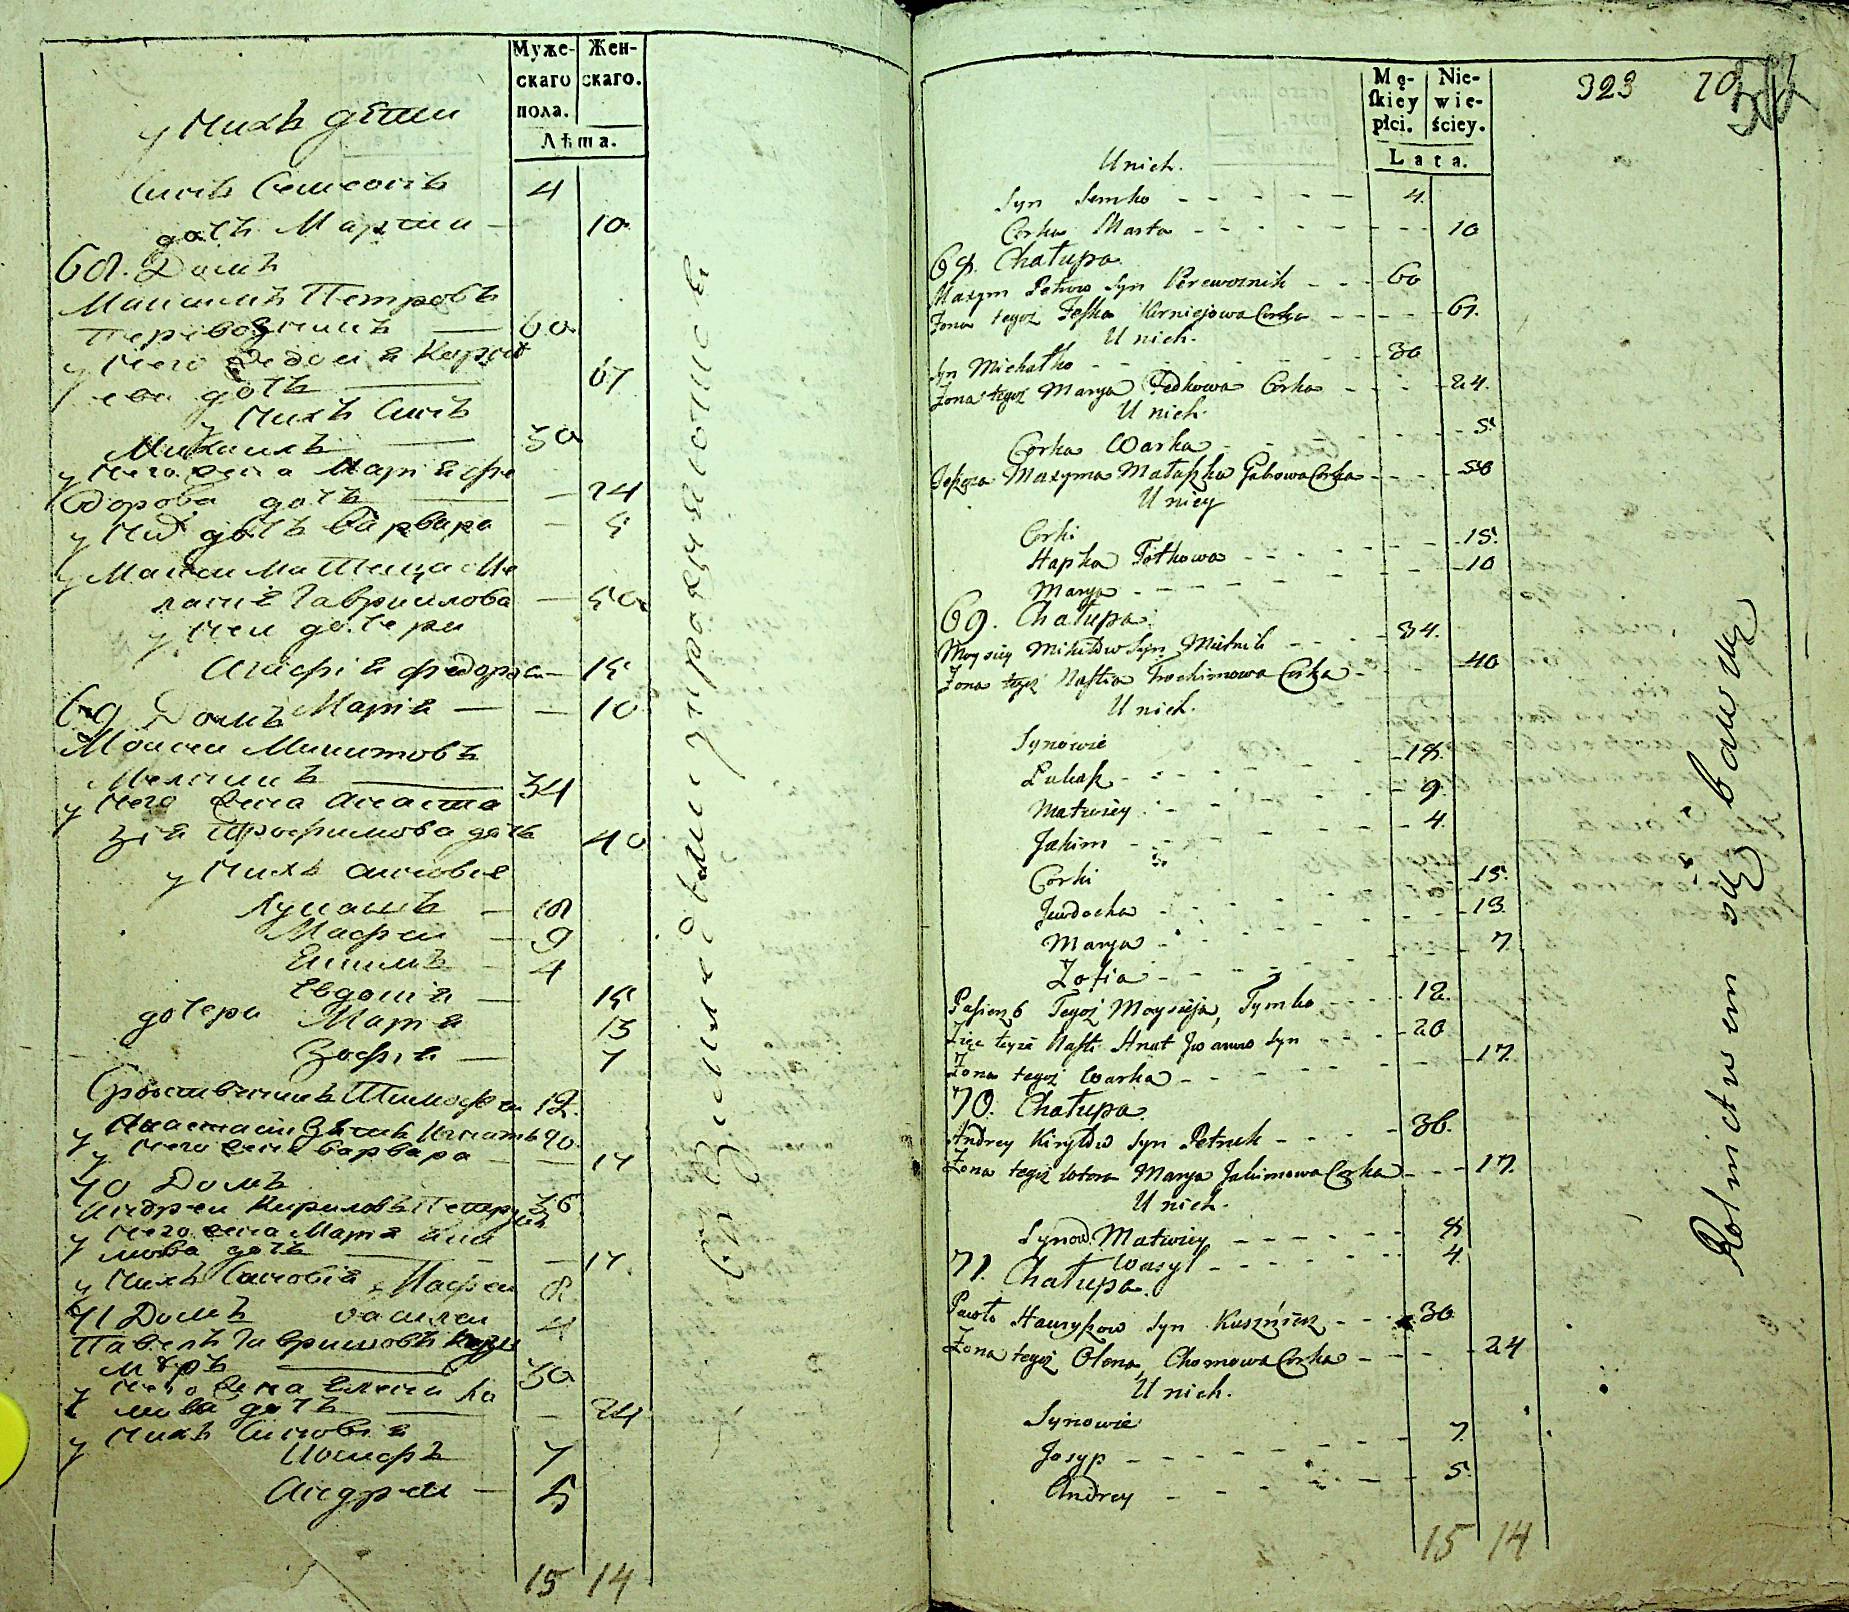 Муже- Жен-
скаго скаго.
пола.
Лѣта.
у нихъ дѣти
Сынъ Семеонъ 4
дочь Марта 10
68. Домъ
Максимъ Петровъ
Перевозникъ 60
у него жена
ева дочь 67
у нихъ сынъ
Михаилъ 30
у него жена Марія Фе
дорова дочь 24
у них дочь Варвара 5
у Максима теща Ме
ланія Гавриилова 50
у ней дочери
Агафія Федорова 15
Марія 10
69 Домъ
Моисей Микитовъ
Мелникъ 34
у него жена Анаста
зія Трофимова дочь 40
у нихъ сыновья
Лукашъ 18
Мафей 9
Екимъ 4
дочери Евдокія 15
Марія 13
Зофія 7
Тимофей 12
Анастасіи зять Игнатъ 20
у него жена Варвара 17
70 Домъ
Андрей Кириловъ Петрукъ 36
у него жена Марія Яки
мова дочь 17
у нихъ сыновья Мафей 8
Василей 4
71 Домъ
Павелъ Гавриловъ Кушн
ѣръ 30
у него жена Елена Хо
мова дочь 24
у нихъ сыновья
Иосифъ 7
Андрей 5
15 14
Mę- Nie-
ſkiey wie-
płci. ściey.
Lata.
323 70
U nich.
Syn Semko 4.
Corka Marta 10
68. Chałupa.
Maxym Petrow Syn Perewoznik 60
Zona tegoż Feſka Kirniejowa Corka 67.
U nich.
Syn Michałko 30
Zona tegoż Marya Fedkowa Corka 24.
U nich.
Corka Warka 5
Teſzcza Maxyma Małaſzka Gabrowa Corka 50
U niey
Corki
Hapka Fetkowa 15.
Marya 10
69. Chałupa.
Moysiey Mikitow Syn Mielnik 34.
Zona tegoż Naſtia Trochimowa Corka 40
U nich.
Synowie
Łukaſz 18.
Matwiey 9.
Jakim 4.
Corki
Juwdocha 15.
Marya 13.
Zofia 7
Pasierzb Tegoż Moysieja, Tymko 12.
Zięc teyże Naſti Hnat Iwanow Syn 20
Zona tegoż Warka 17.
70. Chałupa.
Andrey Kiryłow Syn Petruk 36.
Zona tegoż wtora Marya Jakimowa Corka 17.
U nich.
Synow. Matwiey 8
Wasyl 4.
71. Chałupa.
Pawło Hawryłow Syn Kuszńierz 30
Zona tegoż Olena Chomowa Corka 24
U nich.
Synowie
Josyp 7.
Andrey 5.
15 14
Rolnictwem się bawią